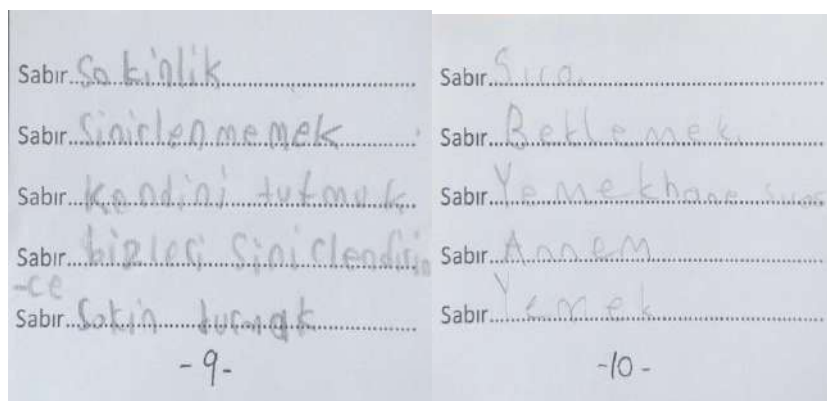 Sabır...Sakinlik
Sabır...Sinirlenmemek
Sabır...Kendini tutmak
Sabır...bizleri Sinirlendirin
-ce
Sabır...Sakin durmak
-9-
Sabır...Sıra
Sabır...Beklemek
Sabır...Yemekhane sırası
Sabır...Annem
Sabır...Yemek
-10-